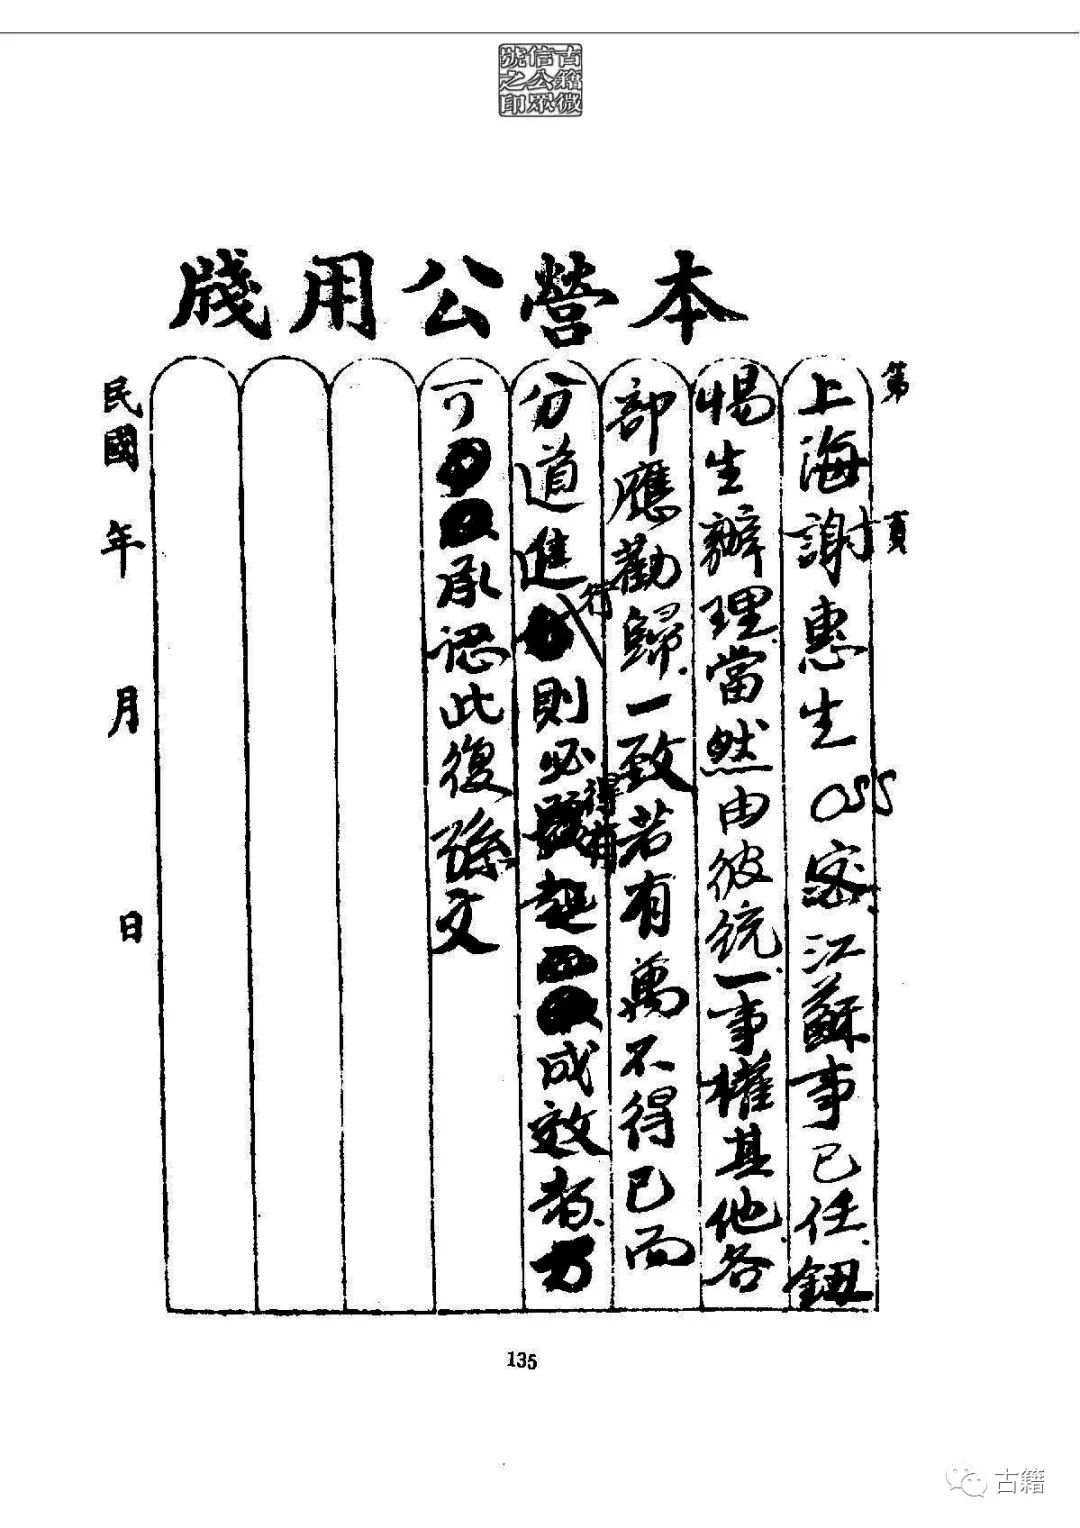 古籍微
信公眾
號之印
本營公用牋
第 頁
上海謝惠生 OSS密江蘇事已任鈕
惕生辦理當然由彼統一事權其他各
部應勸歸一致若有萬不得已而
分道進行則必得有起成效者方
可承認此復孫文
民國 年 月 日
135
古籍